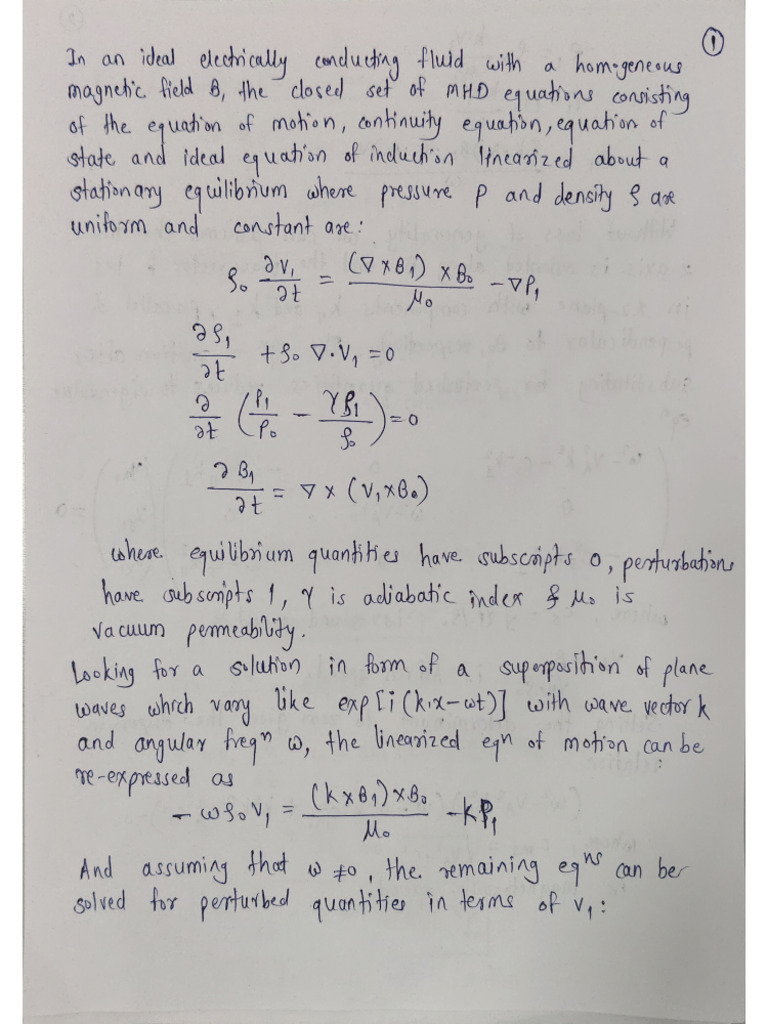 ①
In an ideal electrically conducting fluid with a homogeneous
magnetic field B, the closed set of MHD equations consisting
of the equation of motion, continuity equation, equation of
state and ideal equation of induction linearized about a
stationary equilibrium where pressure p and density ρ are
uniform and constant are:
ρ₀ ∂v₁/∂t = (∇×B₁)×B₀/μ₀ − ∇P₁
∂ρ₁/∂t + ρ₀ ∇·V₁ = 0
∂/∂t (P₁/P₀ − γρ₁/ρ₀) = 0
∂B₁/∂t = ∇ × (V₁×B₀)
where equilibrium quantities have subscripts 0, perturbations
have subscripts 1, γ is adiabatic index & μ₀ is
vacuum permeability.
Looking for a solution in form of a superposition of plane
waves which vary like exp[i(k·x−ωt)] with wave vector k
and angular freqⁿ ω, the linearized eqⁿ of motion can be
re-expressed as
− ωρ₀V₁ = (k×B₁)×B₀/μ₀ − kP₁
And assuming that ω ≠ 0, the remaining eqⁿˢ can be
solved for perturbed quantities in terms of v₁: